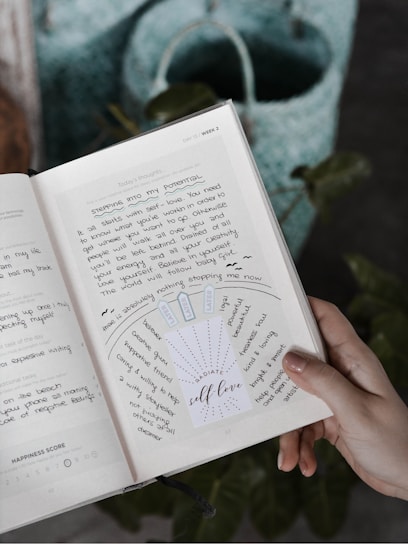 in my life
am
my think
ening up one I my
pecting myself
or expensive
on the beach
you phone all morning
Lot of negative feelings
HAPPINESS SCORE
WEEK 2
Today's thoughts
STEPPING INTO MY POTENTIAL
It all starts with self-love. You need
to know what you're worth in order to
get where you want to go otherwise
people will walk all over you and
you'll be left behind Drained of all
your energy and all your creativity
Love yourself. Believe in yourself
The world will follow baby girl.
there is absolutely nothing stopping me now
listener
Creative guru
Supportive friend
Caring & willing to help
a witty storyteller
not judging
others at all
dreamer
loyal
powerful
beautiful
fearless soul
kind & loving
bright & smart
help people
and open
artistic
RADIATE
self-love